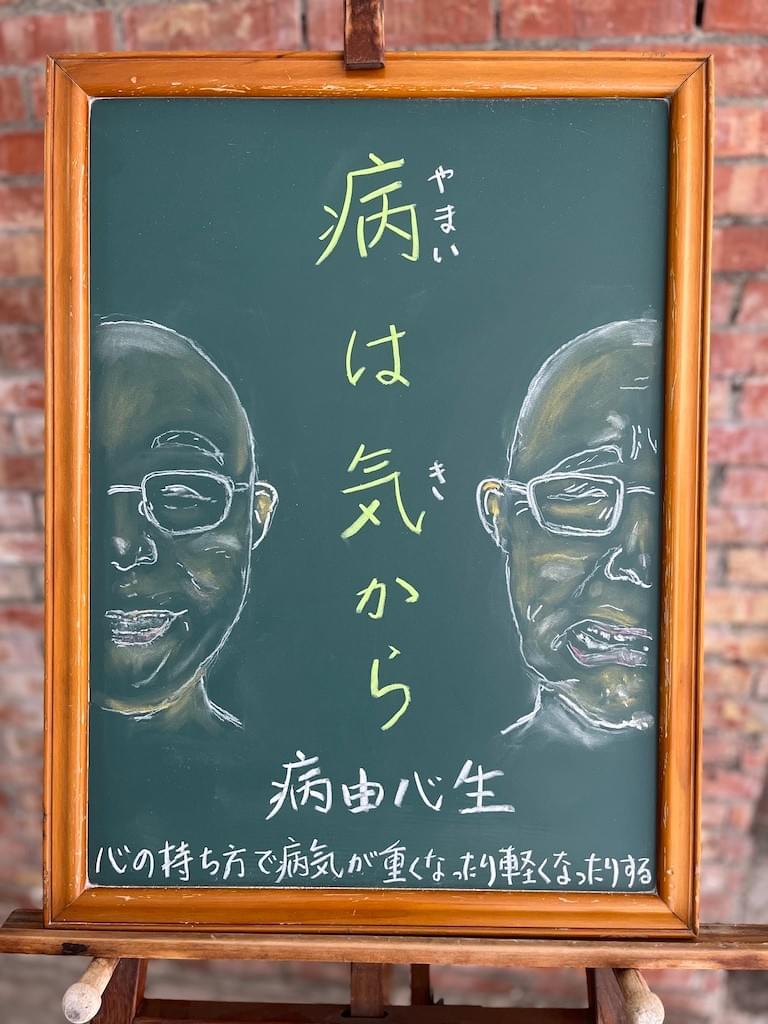 病は気から
やまい
き
病由心生
心の持ち方で病気が重くなったり軽くなったりする